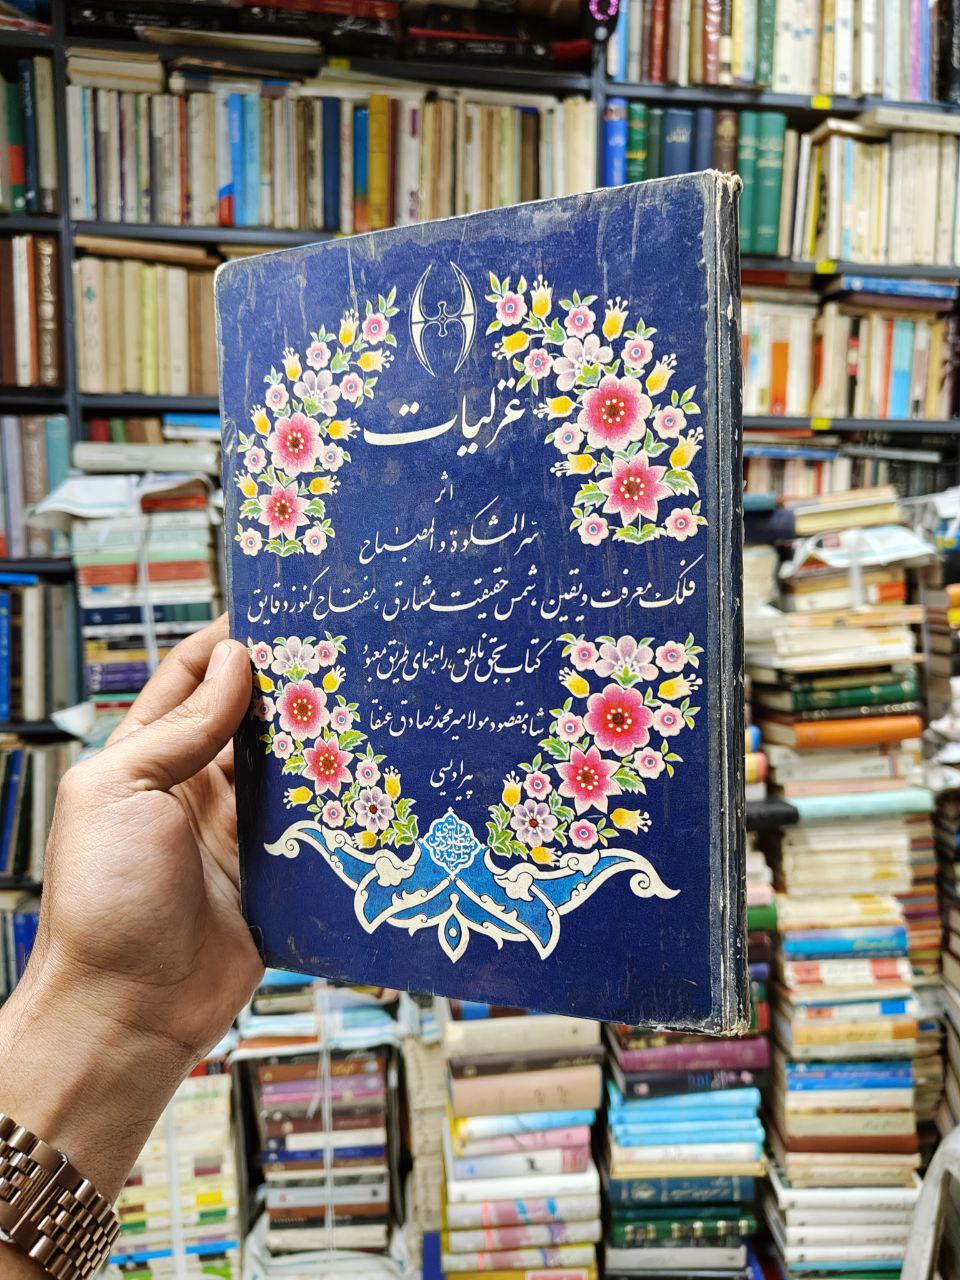 غزلیات
اثر
سرّ المشکوة و المصباح
فلک معرفت و یقین، شمس حقیقت مشارق، مفتاح کنوز دقایق
کتاب بحق ناطق، راهنمای طریق معبود
شاه مقصود مولا میر محمّد صادق عنقا
پیر اویسی